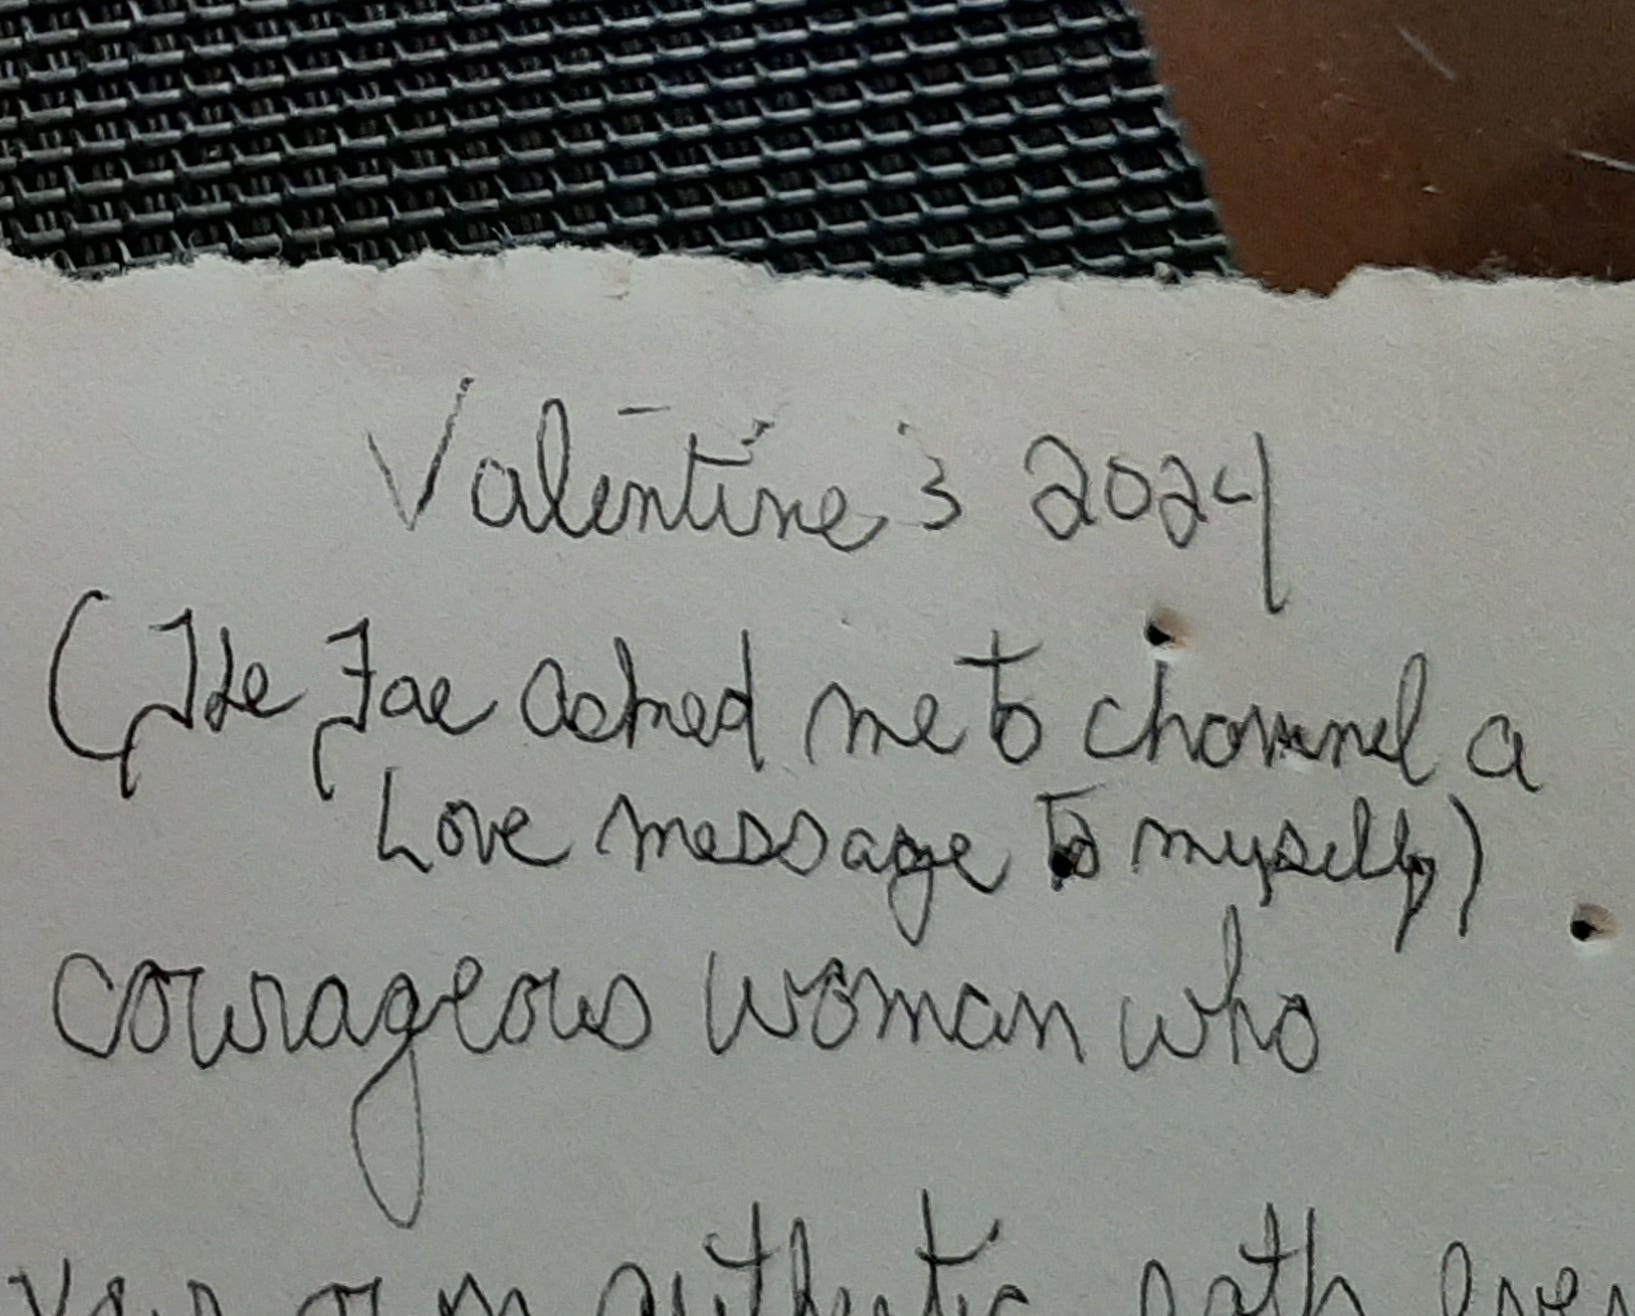 Valentine's 2024
(The Fae asked me to channel a
Love message to myself)
courageous woman who
own authentic path